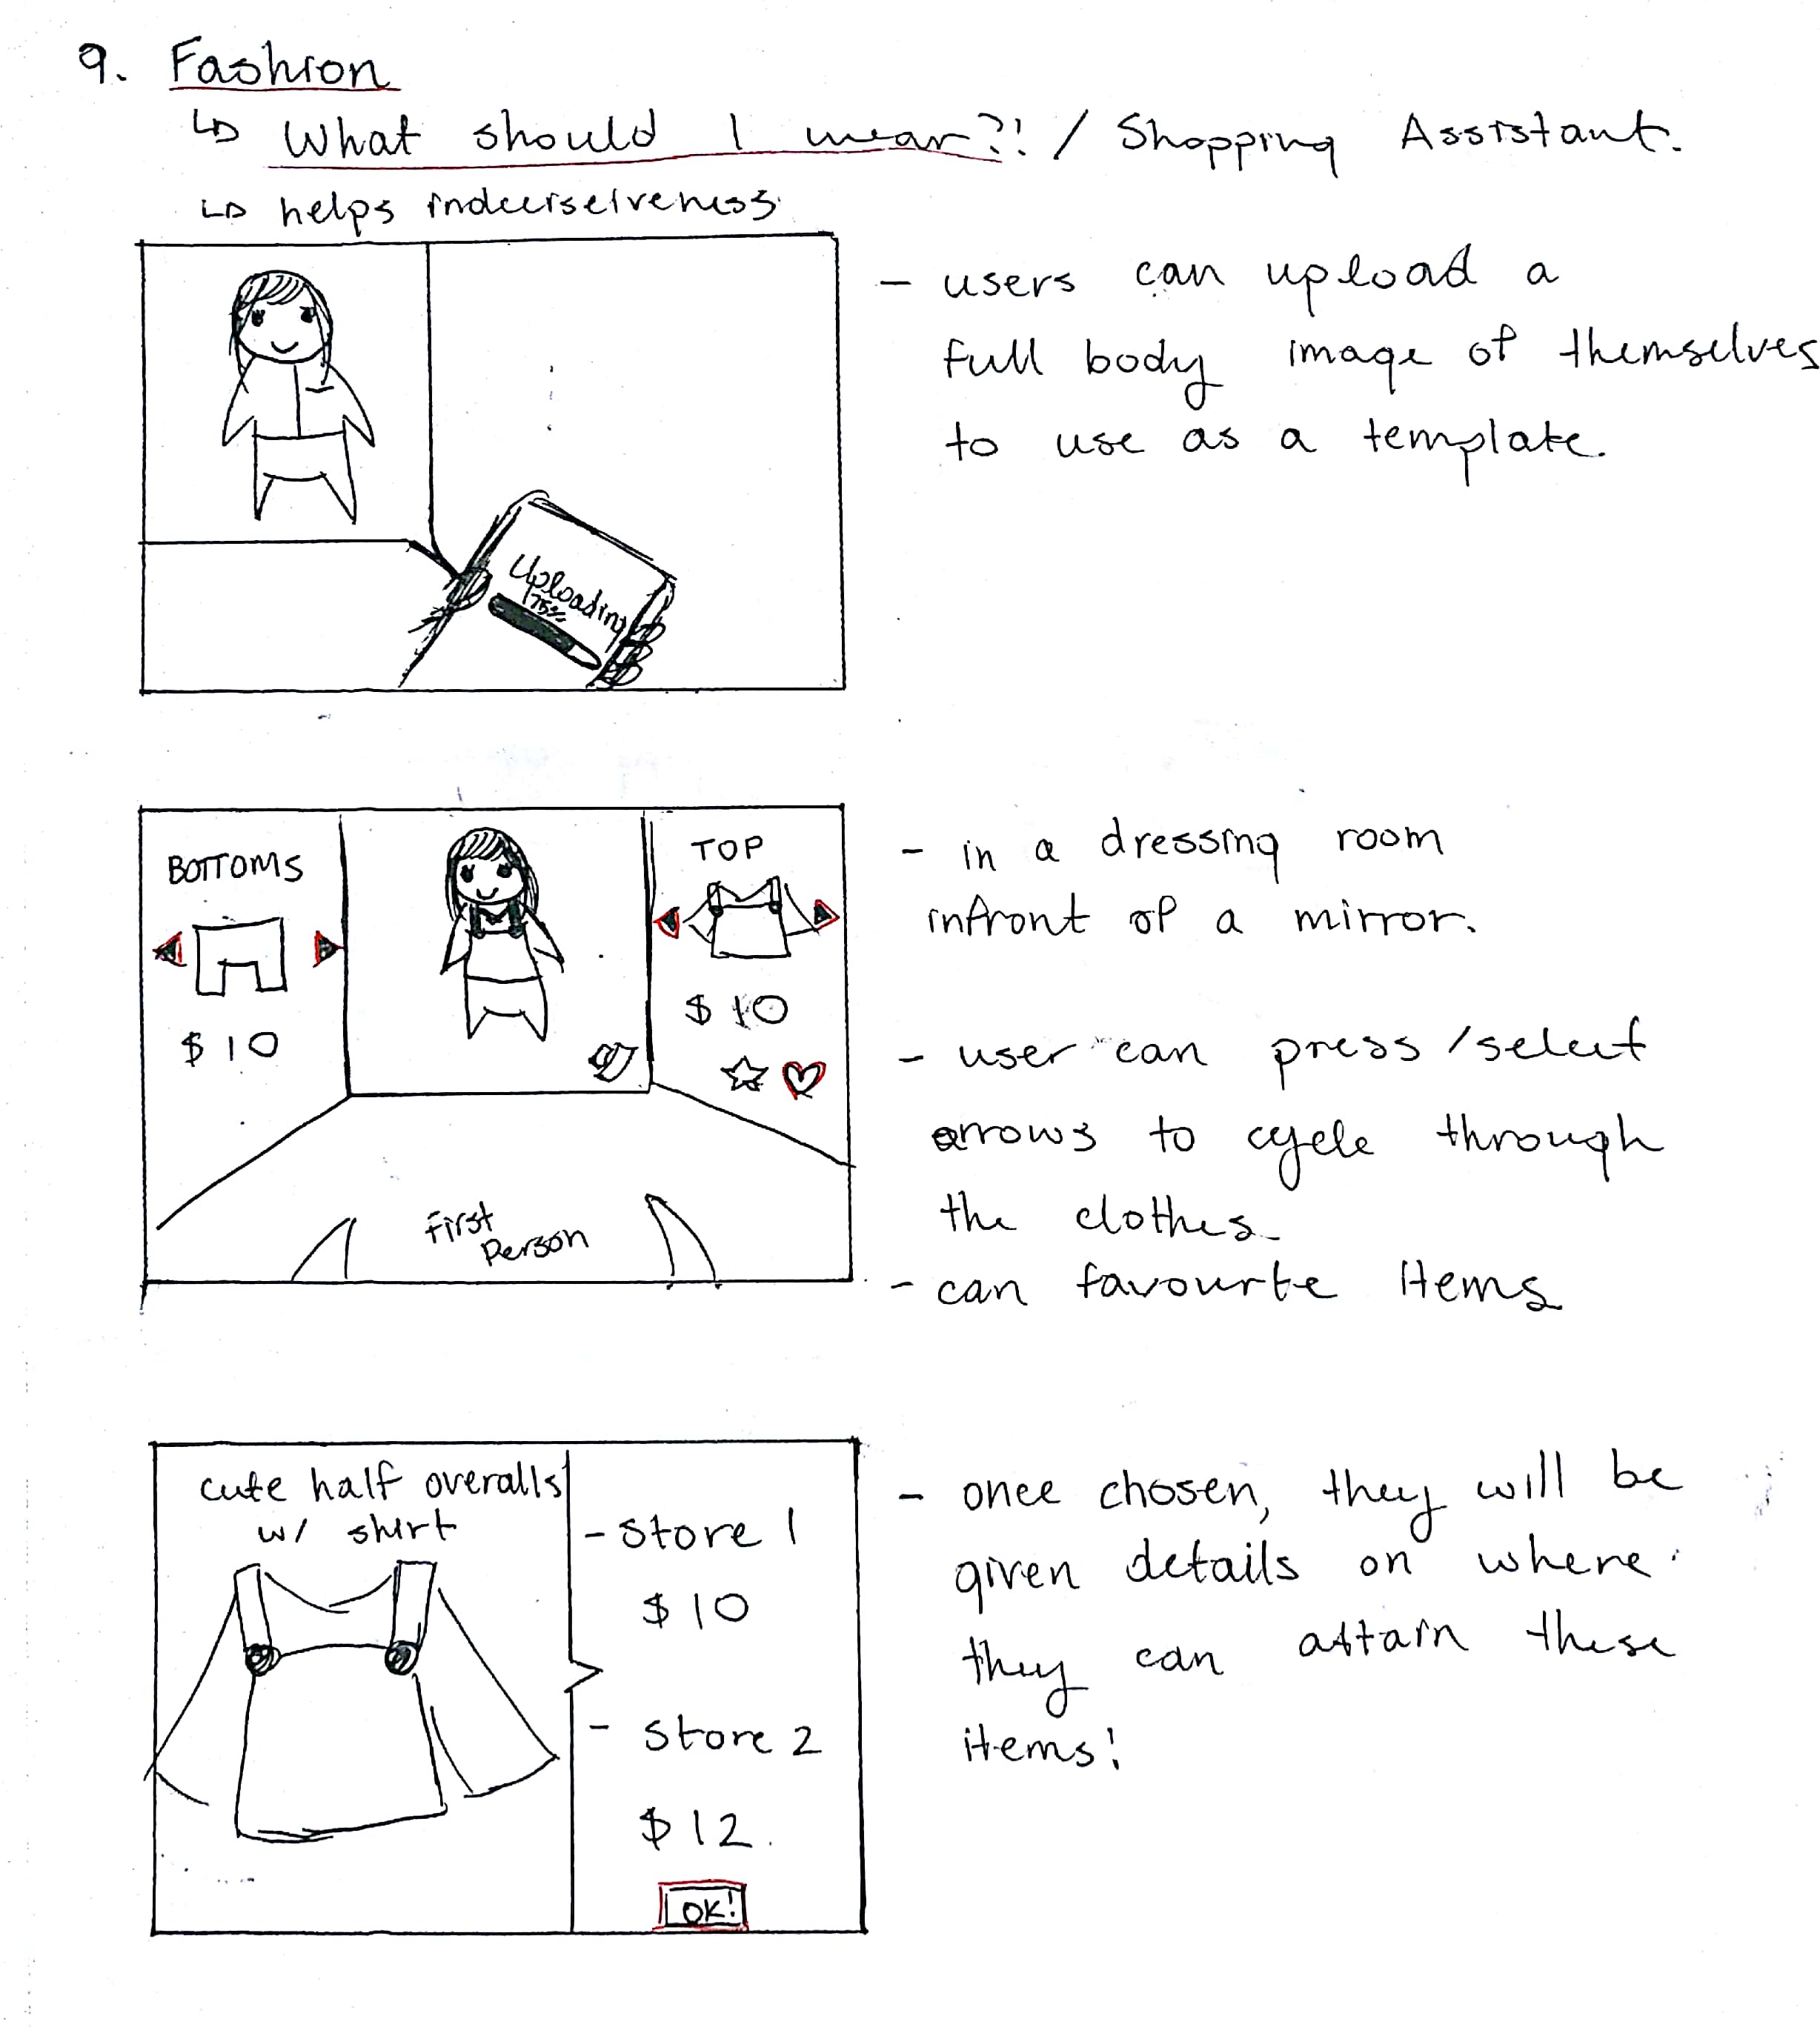 9. Fashion
↳ What should I wear?! / Shopping Assistant.
↳ helps indecisiveness.
- users can upload a
full body image of themselves
to use as a template.
Uploading
75%
BOTTOMS
$10
TOP
$10
First
Person
- in a dressing room
infront of a mirror.
- user can press/select
arrows to cycle through
the clothes.
- can favourite items
cute half overalls
w/ shirt
- store 1
$10
- store 2
$12
OK!
- once chosen, they will be
given details on where
they can attain these
items!